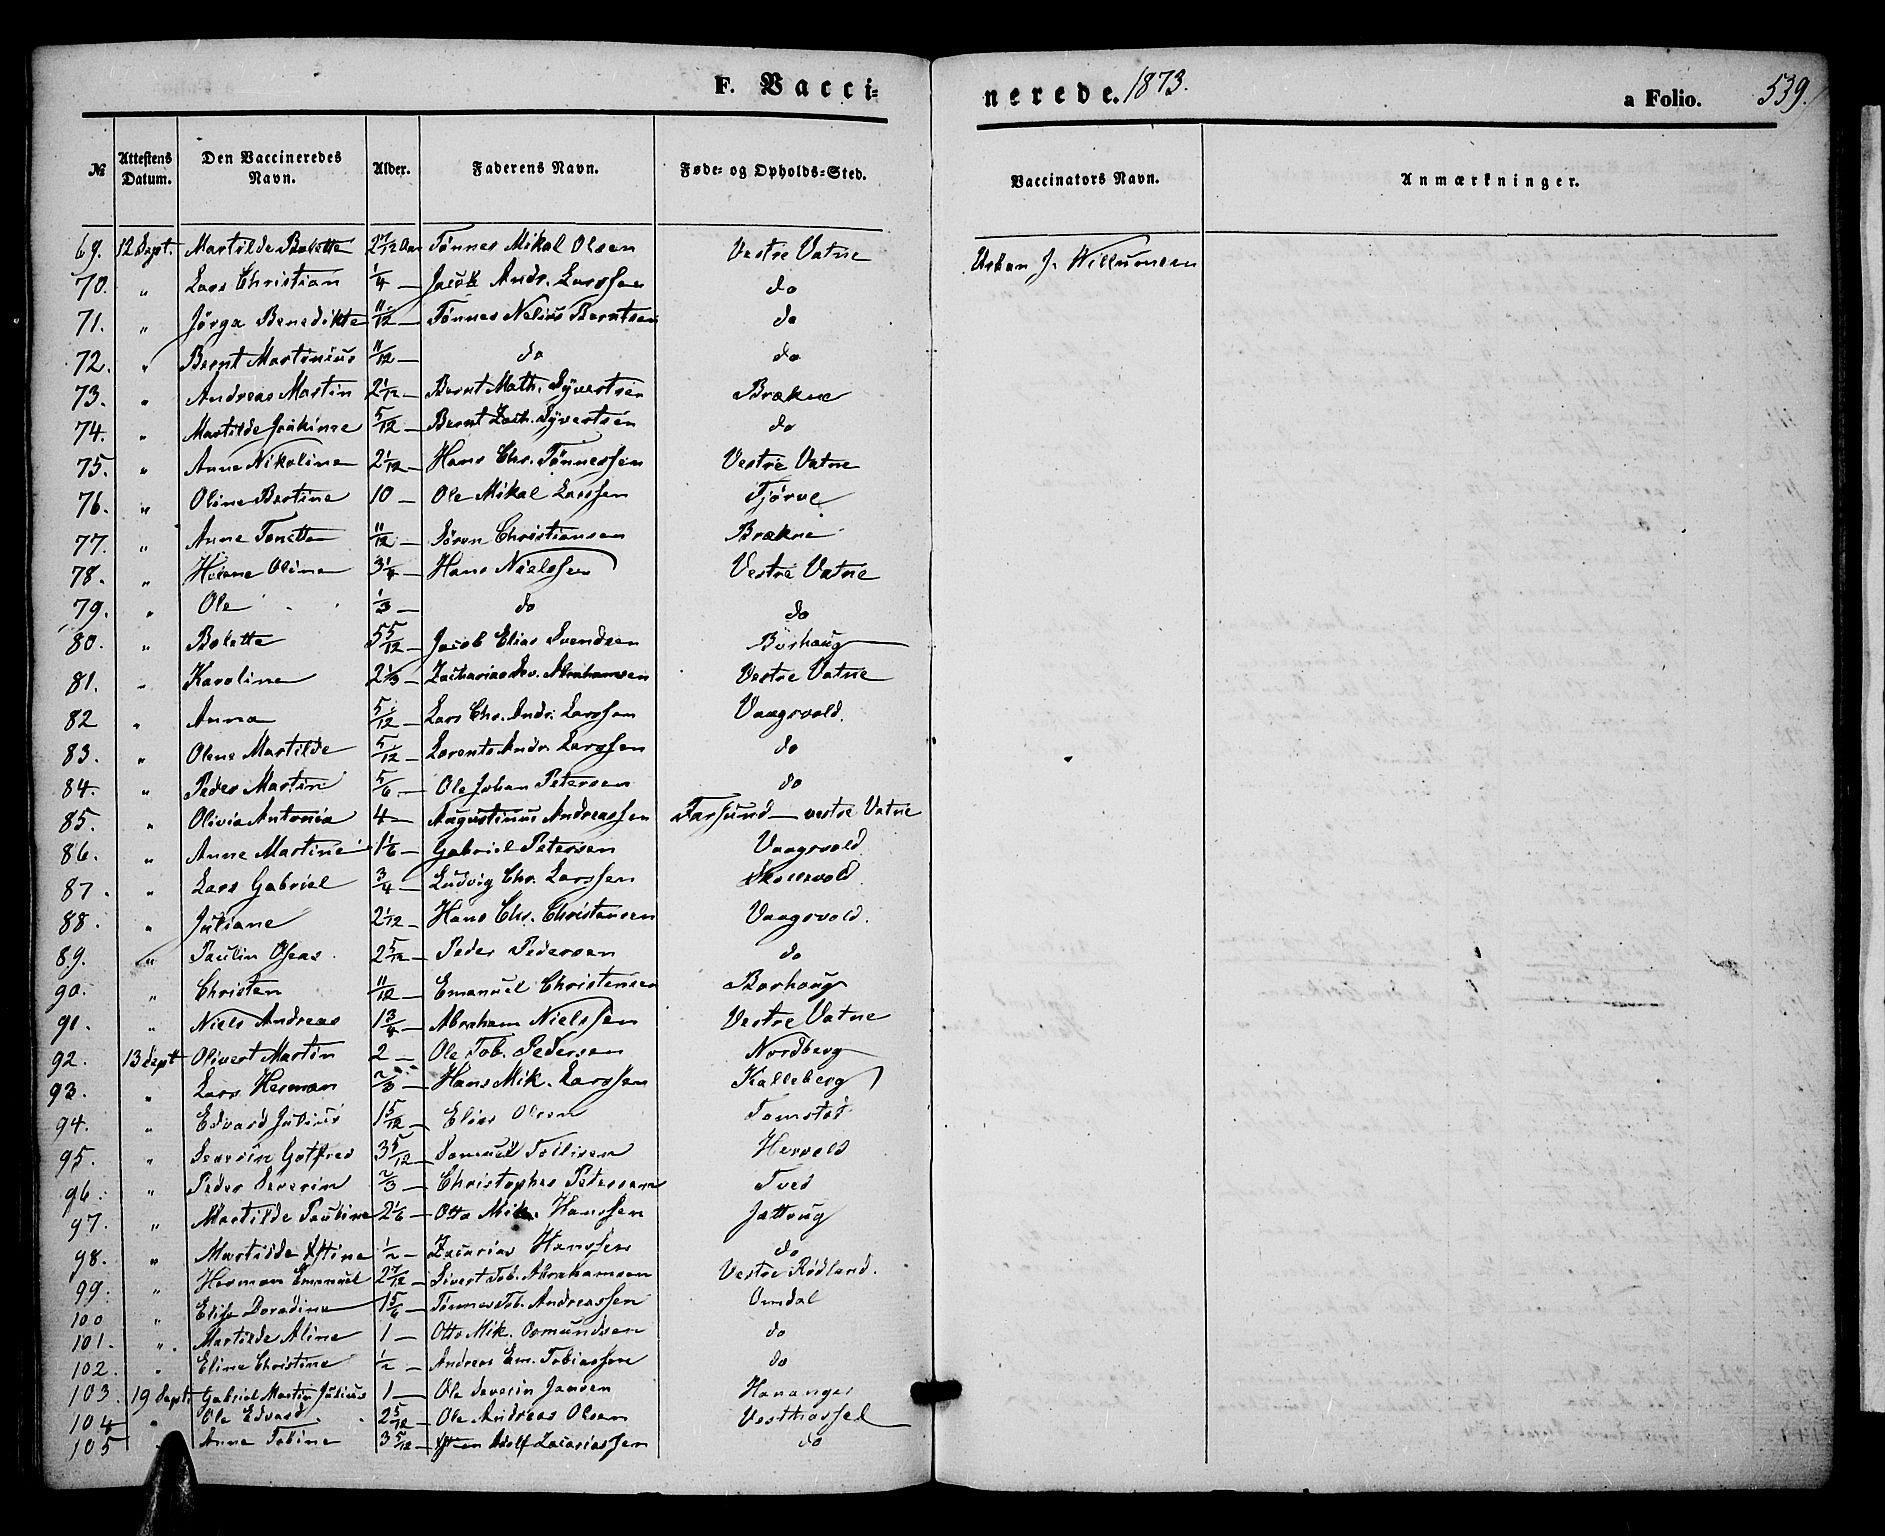 F. Vacci-
nerede. 1873.
a Folio. 539.
№ Attestens Datum. Den Vaccineredes Navn. Alder. Faderens Navn. Føde- og Opholds-Sted. Vaccinators Navn. Anmærkninger.
69. 12 Sept. Martilde Bolette 2 7/12 Aar Tønnes Mikal Olsen Vestre Vatne Urban J. Willumsen
70. " Lars Christian 1/4 — Jacob Andr. Larssen do
71. " Jørga Benedikte 11/12 — Tønnes Nelius Berntsen do
72. " Bernt Martinius 11/12 — do do
73. " Andreas Martin 2 1/12 — Bernt Math. Syvertsen Brækne
74. " Martilde Joakime 5/12 — Bernt Zach. Syvertsen do
75. " Anne Nikoline 2 1/12 — Hans Chr. Tønnessen Vestre Vatne
76. " Oline Bertine 10 — Ole Mikal Larssen Tjørve
77. " Anne Tonette 11/12 — Søren Christiansen Brækne
78. " Helene Oline 3 1/4 — Hans Nielssen Vestre Vatne
79. " Ole 1/3 — do do
80. " Bolette 5 5/12 — Jacob Elias Svendsen Borhaug
81. " Karoline 2 1/3 — Zacharias Sev. Abrahamsen Vestre Vatne
82 " Anna 5/12 — Lars Chr. Andr. Larssen Vaagsvold.
83. " Olene Martilde 5/12 — Lorents Andr. Larssen do
84. " Peder Martin 5/6 — Ole Johan Petersen do
85. " Olivia Antonia 4 — Augustinus Andreassen Farsund — vestre Vatne
86. " Anne Martine 1 1/6 — Gabriel Petersen Vaagsvold
87. " Lars Gabriel 3/4 — Ludvig Chr. Larssen Skeisvold
88. " Juliane 2 1/12 — Hans Chr. Christensen Vaagsvold.
89. " Paulin Oseas. 2 5/12 — Peder Pedersen do
90. " Christen 11/12 — Emanuel Christensen Borhaug
91. " Niels Andreas 1 3/4 — Abraham Nielssen Vestre Vatne
92. 13 Sept Olivert Martin 2 — Ole Tob. Pedersen Nordberg
93. " Lars Herman 2/3 — Hans Mik. Larssen Kalleberg
94. " Edvard Julius 1 5/12 — Elias Olsen Tomstøl
95. " Severin Gotfred 3 5/12 — Samuel Tollisen Hervold
96. " Peder Severin 2/3 — Christopher Petersen Tved
97. " Martilde Pauline 2 1/6 — Otto Mik. Hanssen Jøttoug
98. " Martilde Xstine 1/2 — Zacarias Hanssen do
99. " Herman Emanuel 2 7/12 — Sivert Tob. Abrahamsen Vestre Rødland.
100 " Elise Doradine 1 5/6 — Tønnes Tob. Andreassen Omdal
101. " Martilde Aline 1 — Otto Mik. Osmundsen do
102. " Eline Christine 1/2 — Andreas Em. Tobiassen do
103. 19 Sept. Gabriel Martin Julius 1 — Ole Severin Jansen Hananger
104 " Ole Edvard 2 5/12 — Ole Andreas Olsen Vesthassel
105 Anne Tobine 3 5/12 — Xten Adolf Zacariassen do